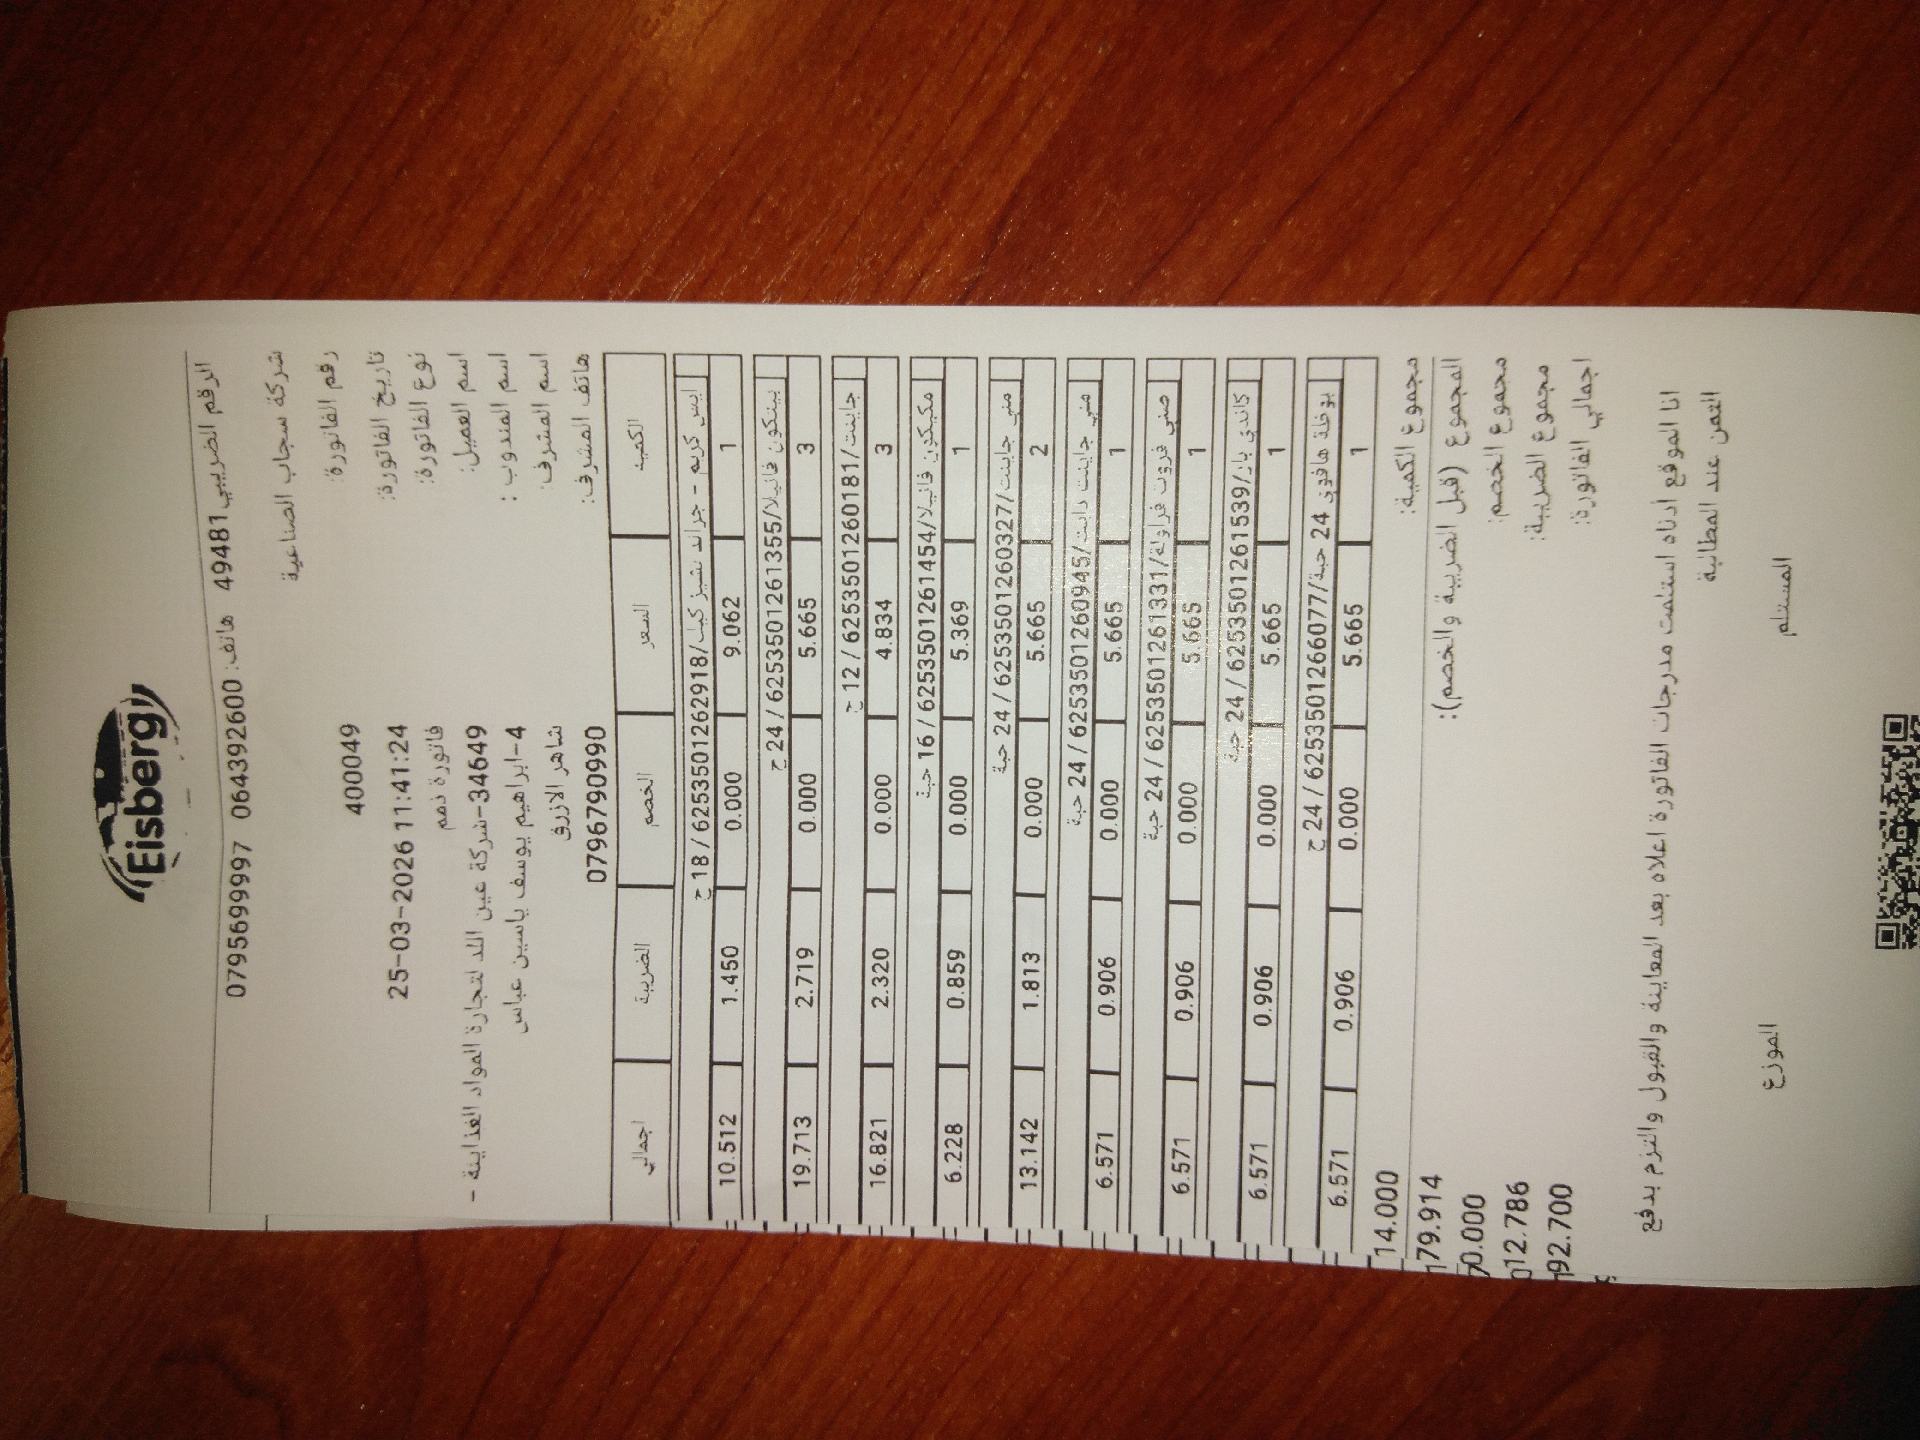 Eisberg
الرقم الضريبي 49481 هاتف: 0643926000 0795699997
شركة سجاب الصناعية
رقم الفاتورة: 400049
تاريخ الفاتورة: 25-03-2026 11:41:24
نوع الفاتورة: فاتورة ذمم
اسم العميل: 34649-شركة عين اللد لتجارة المواد الغذائية -
اسم المندوب : 4-ابراهيم يوسف ياسين عباس
اسم المشرف: شاهر الازرق
هاتف المشرف: 0796790990
الكمية السعر الخصم الضريبة اجمالي
ايس كريم - جراند تشيز كيك/6253501262918 / 18 ح
1 9.062 0.000 1.450 10.512
بيتكون فانيلا/6253501261355 / 24 ح
3 5.665 0.000 2.719 19.713
جاينت/6253501260181 / 12 ح
3 4.834 0.000 2.320 16.821
مكيكون فانيلا/6253501261454 / 16 حبة
1 5.369 0.000 0.859 6.228
مني جاينت/6253501260327 / 24 حبة
2 5.665 0.000 1.813 13.142
مني جاينت دايت/6253501260945 / 24 حبة
1 5.665 0.000 0.906 6.571
مني فروت فراولة/6253501261331 / 24 حبة
1 5.665 0.000 0.906 6.571
كاندي بار/6253501261539 / 24 حبة
1 5.665 0.000 0.906 6.571
24 حبة/6253501266077 / 24 ح
1 5.665 0.000 0.906 6.571
مجموع الكمية: 14.000
المجموع (قبل الضريبة والخصم): 79.914
مجموع الخصم: 0.000
مجموع الضريبة: 12.786
اجمالي الفاتورة: 92.700
انا الموقع ادناه استلمت مدرجات الفاتورة اعلاه بعد المعاينة والقبول والتزم بدفع
الثمن عند المطالبة
المستلم الموزع